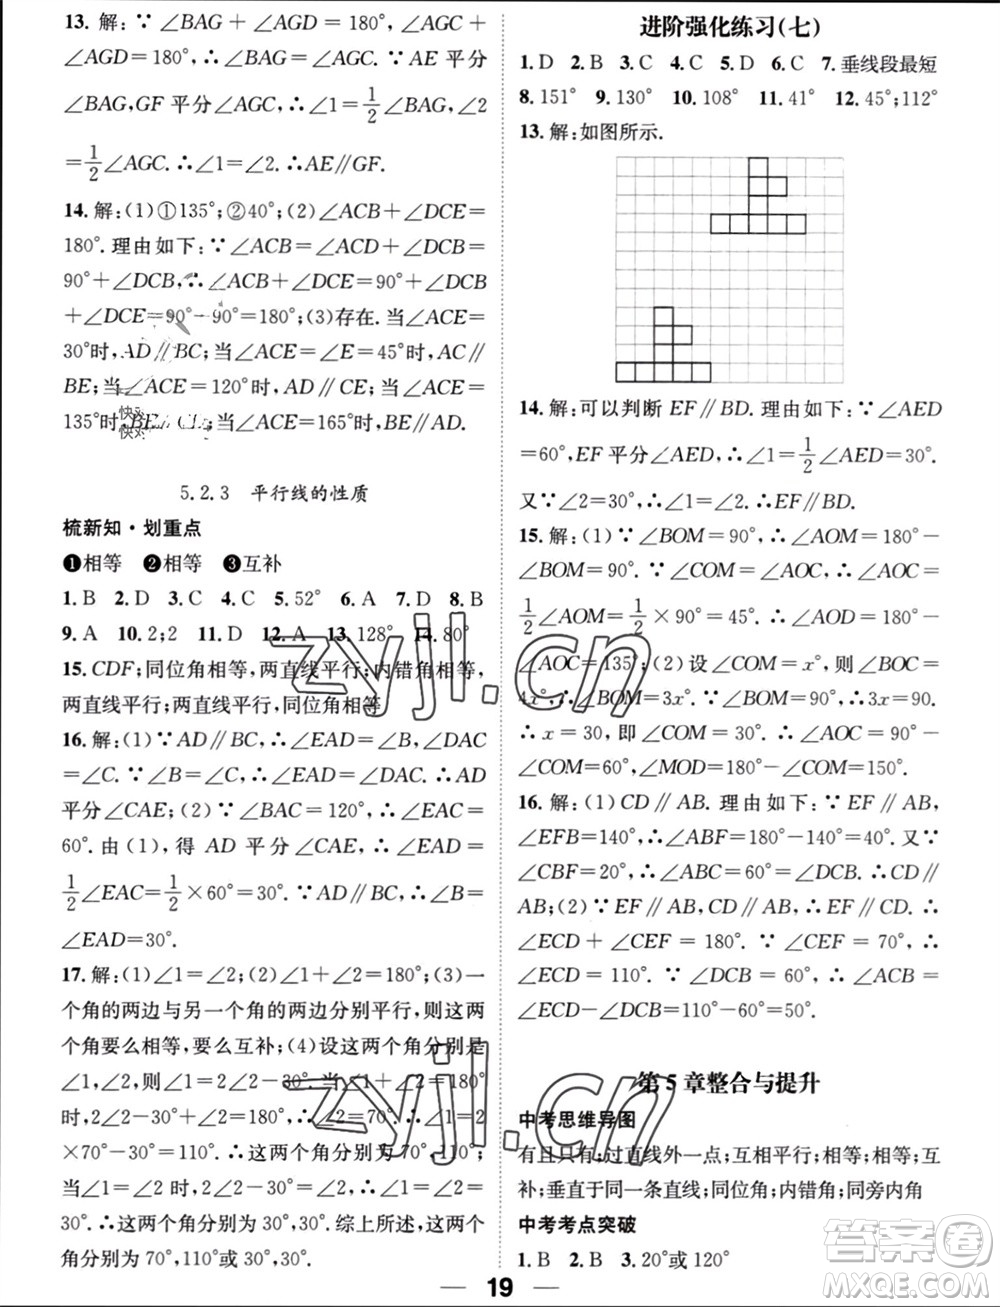 13. 解:∵∠BAG+∠AGD=180°,∠AGC+
∠AGD=180°,∴∠BAG=∠AGC.∵AE平分
∠BAG,GF平分∠AGC,∴∠1=1/2∠BAG,∠2
=1/2∠AGC.∴∠1=∠2.∴AE∥GF.
14. 解:(1)①135°;②40°;(2)∠ACB+∠DCE=
180°.理由如下:∵∠ACB=∠ACD+∠DCB=
90°+∠DCB,∴∠ACB+∠DCE=90°+∠DCB
+∠DCE=90°+90°=180°;(3)存在.当∠ACE=
30°时,AD∥BC;当∠ACE=∠E=45°时,AC∥
BE;当∠ACE=120°时,AD∥CE;当∠ACE=
135°时,BE∥CE;当∠ACE=165°时,BE∥AD.
5.2.3 平行线的性质
梳新知·划重点
❶相等 ❷相等 ❸互补
1. B 2. D 3. C 4. C 5. 52° 6. A 7. D 8. B
9. A 10. 2;2 11. D 12. A 13. 128° 14. 80°
15. CDF;同位角相等,两直线平行;内错角相等,
两直线平行;两直线平行,同位角相等
16. 解:(1)∵AD∥BC,∴∠EAD=∠B,∠DAC
=∠C.∵∠B=∠C,∴∠EAD=∠DAC.∴AD
平分∠CAE;(2)∵∠BAC=120°,∴∠EAC=
60°.由(1),得AD平分∠CAE,∴∠EAD=
1/2∠EAC=1/2×60°=30°.∵AD∥BC,∴∠B=
∠EAD=30°.
17. 解:(1)∠1=∠2;(2)∠1+∠2=180°;(3)一
个角的两边与另一个角的两边分别平行,那么这两
个角要么相等,要么互补;(4)设这两个角分别是
∠1,∠2,则∠1=2∠2-30°.当∠1+∠2=180°
时,2∠2-30°+∠2=180°,∴∠2=70°.∴∠1=2
×70°-30°=110°.∴这两个角分别为70°,110°;
当∠1=∠2时,2∠2-30°=∠2,∴∠2=30°,∠1=
30°.∴这两个角分别为30°,30°.综上所述,这两个
角分别为70°,110°或30°,30°.
进阶强化练习(七)
1. D 2. B 3. C 4. C 5. D 6. C 7. 垂线段最短
8. 151° 9. 130° 10. 108° 11. 41° 12. 45°;112°
13. 解:如图所示.
14. 解:可以判断EF∥BD.理由如下:∵∠AED
=60°,EF平分∠AED,∴∠1=1/2∠AED=30°.
又∵∠2=30°,∴∠1=∠2.∴EF∥BD.
15. 解:(1)∵∠BOM=90°,∴∠AOM=180°-
∠BOM=90°.∵∠COM=∠AOC,∴∠AOC=
1/2∠AOM=1/2×90°=45°.∴∠AOD=180°-
∠AOC=135°;(2)设∠COM=x°,则∠BOC=
4x°.∴∠BOM=3x°.∵∠BOM=90°,∴3x=90.
∴x=30,即∠COM=30°.∴∠AOC=90°-
∠COM=60°,∠MOD=180°-∠COM=150°.
16. 解:(1)CD∥AB.理由如下:∵EF∥AB,
∠EFB=140°,∴∠ABF=180°-140°=40°.又∵
∠CBF=20°,∴∠ABC=60°=∠DCB.∴CD∥
AB;(2)∵EF∥AB,CD∥AB,∴EF∥CD.∴
∠ECD+∠CEF=180°.∵∠CEF=70°,∴
∠ECD=110°.∵∠DCB=60°,∴∠ACB=
∠ECD-∠DCB=110°-60°=50°.
第5章整合与提升
中考思维导图
有且只有;过直线外一点;互相平行;相等;相等;互
补;垂直于同一条直线;同位角;内错角;同旁内角
中考考点突破
1. B 2. B 3. 20°或120°
19
zyjl.cn
zyjl.cn
答案圈
MXQE.COM